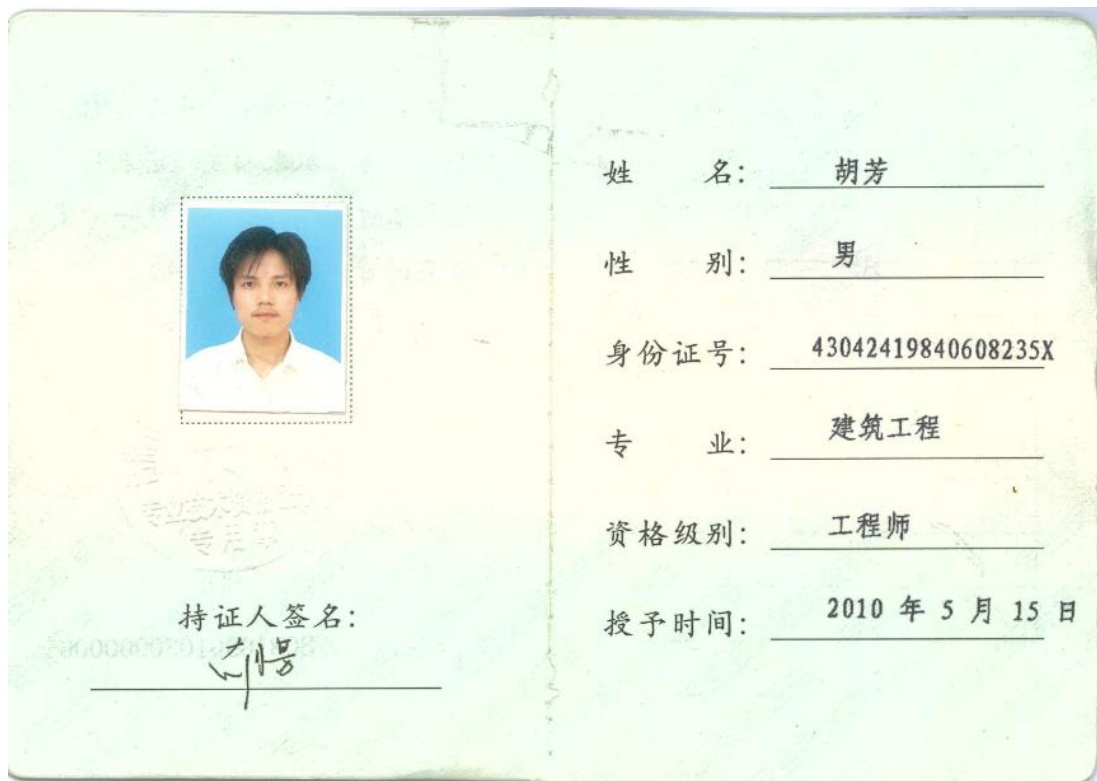 姓 名: 胡芳
性 别: 男
身份证号: 43042419840608235X
专 业: 建筑工程
资格级别: 工程师
授予时间: 2010 年 5 月 15 日
持证人签名: